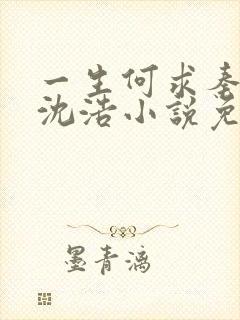 一生何求秦
沈浩小說免
墨青漓